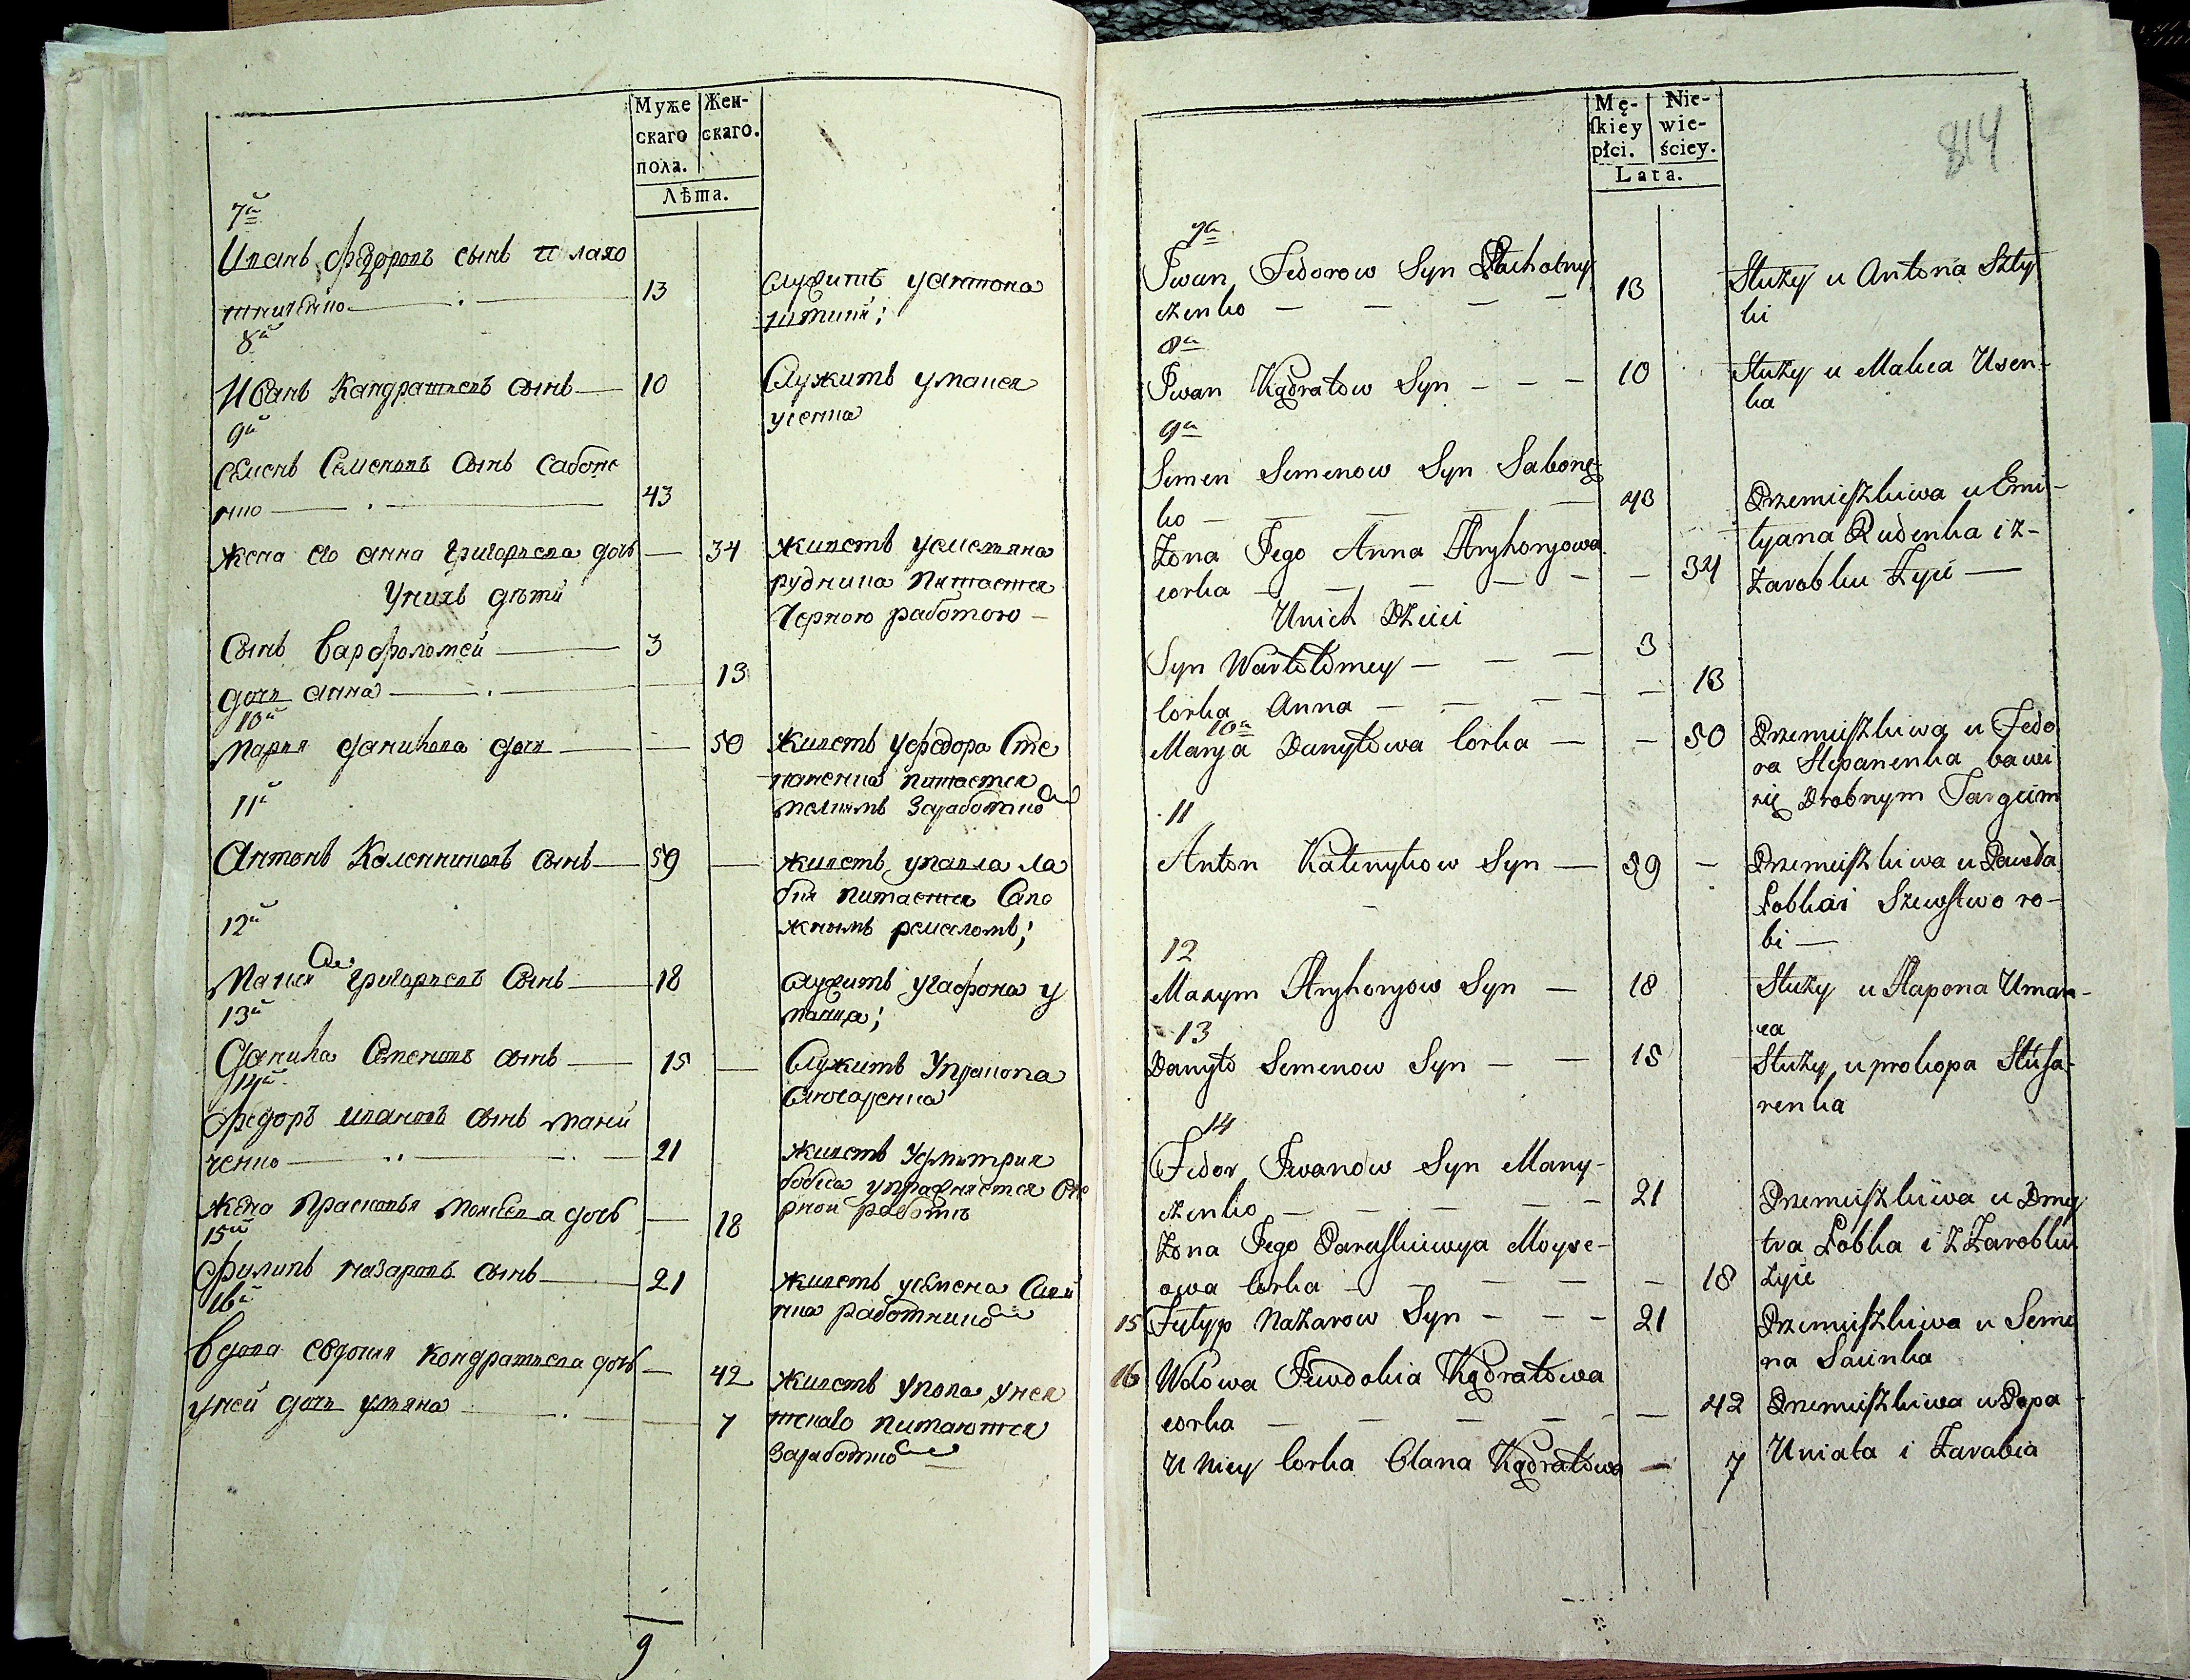 Муже
скаго
пола.
Жен-
скаго.
Лѣта.
7й
Иванъ Федоровъ сынъ плахо
тниченко
13
служитъ у антона
штики;
8й
Иванъ Кандратьевъ сынъ
10
Служитъ у макея
усенка
9й
семенъ Семеновъ сынъ сабоне
нко
43
жена его анна григорьева дочь
34
живетъ у емельяна
руденка питается
Черною работою
У нихъ дѣти
Сынъ Варфоломей
3
дочь анна
13
10й
мария данилова дочь
50
живетъ у федора сте
паненка питается
мелкимъ заработкомъ
11й
Антонъ Каленниковъ сынъ
59
живетъ у павла ла
бки питается сапо
жнымъ ремеломъ;
12й
григорьевъ сынъ
18
служитъ у гафона у
манца;
13й
Данила Семеновъ сынъ
15
Служитъ у прокопа
слюсаренка
14й
Федоръ ивановъ сынъ мани
ченко
21
живетъ у дмитрия
бобка упражняется че
рной работѣ
жена Прасковья моисеева дочь
18
15й
Филипъ назаровъ сынъ
21
живетъ у семена саен
ка работникомъ
16й
Вдова евдокия кондратьева дочь
42
живетъ у попа униа
тскаго питаются
заработкомъ
у ней дочь ульяна
7
9
Mę-
ſkiey
płci.
Nie-
wie-
ściey.
Lata.
814
7a
Iwan Fedorow Syn Płachotny
czenko
13
Służy u Antona Szty
ki
8a
Iwan Kądratow Syn
10
Służy u Makea Usen-
ka
9a
Semen Semenow Syn Sabonę-
ko
43
Przemieſzkiwa u Emi-
lyana Rudenka i z-
Zarobku Żyie
Żona Jego Anna Hryhoryowa
corka
34
U nich Dzieci
Syn Wartołomey
3
Corka Anna
13
10a
Marya Danyłowa Corka
50
Przemieſzkiwa u Fedo
ra Stepanenka bawi
się Drobnym Targiem
11
Anton Kalenykow Syn
59
Przemieſzkiwa u Pawła
Łobkai Szewstwo ro-
bi
12
Maxym Hryhoryow Syn
18
Służy u Hapona Uman-
ca
13
Danyło Semenow Syn
15
Służy u prokopa Slusa-
renka
14
Fedor Iwanow Syn Many-
czenko
21
Przemieſzkiwa u Dmy
tra Łobka i z Zarobku
żyie
Żona Jego Paraſkiewya Moyse-
owa Corka
18
15 Fylyp Nazarow Syn
21
Przemieſzkiwa u Seme
na Saienka
16 Wdowa Iewdokia Kądratowa
corka
42
Przemieſzkiwa u Popa
Uniata i Zarabia
U Niey Corka Olana Kądratowa
7